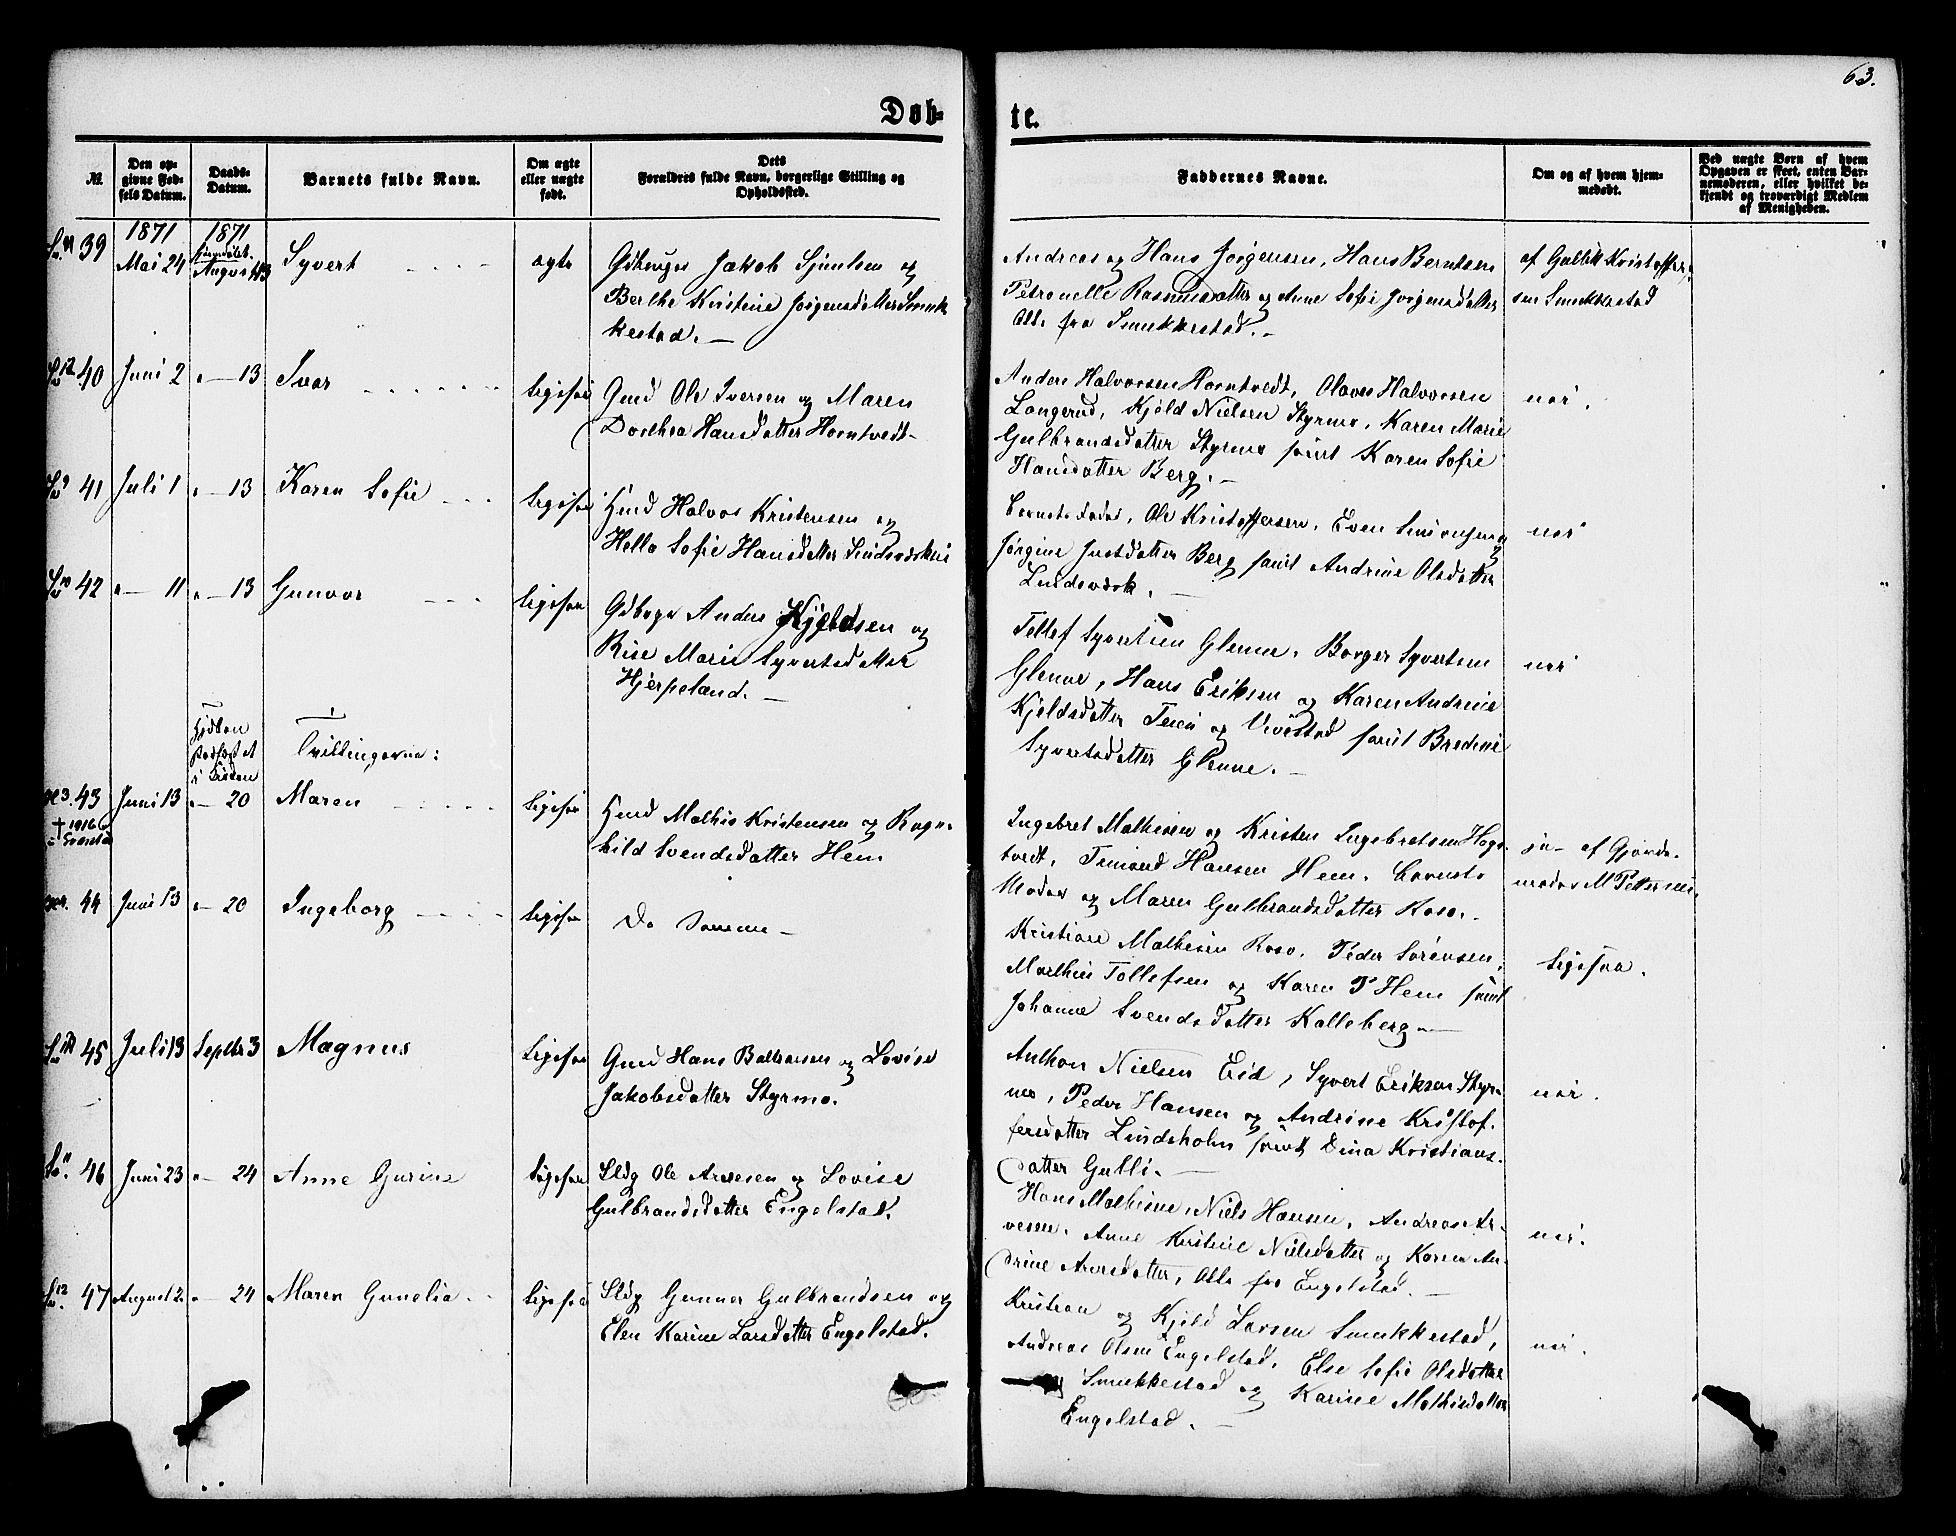 63.
Døb-
te.
№
Den op-
givne Fød-
sels Datum.
Daabs-
Datum.
Barnets fulde Navn.
Om ægte
eller uægte
født.
Dets
Forældres fulde Navn, borgerlige Stilling og
Opholdssted.
Faddernes Navne.
Om og af hvem hjem-
medøbt.
Ved uægte Børn af hvem
Opgaven er skeet, enten Bar-
nemoderen, eller hvilket be-
kjendt og troværdigt Medlem
af Menigheden.
1871
1871
39
Mai 24
August 13
Syvert
ægte
Jakob
og
Berthe Kristine Jørgensdatter Smuk
kestad. —
Andreas og Hans Jørgensen, Hans Berntsen
Petronelle Rasmusdatter og Anne Sofie Jorgensdatter
Alle fra Smukkestad. —
af Gulbik Kristoffer-
sen Smukkestad
40
Juni 2
" — 13
Ivar
ligesaa
Gmd Ole Iversen og Maren
Dorthea Hansdatter Horntvedt -
Anders Halvorsen Horntvedt, Olaves Halvorsen
Langerud, Kjøld Nielsen Styrmo, Karen Marie
Gulbrandsdatter Styrmo samt Karen Sofie
Hansdatter Berg. —
nei.
41
Juli 1
" — 13
Karen Sofie
ligesaa
Hmd Halvor Kristensen og
Helle Sofie Hansdatter Lindsværk
Barnets Fader, Ole Kristoffersen, Even
Jørgine Justdatter Berg samt Andrine Olsdatter
Lindsværk. —
nei
42
" — 11
" — 13
Gunvor
ligesaa
Gdbrgr Anders Kjeldsen og
Rise Marie Syvertsdatter
Hjerpeland. —
Tellef Syvertsen Glenne, Borger Syvertsen
Glenne, Hans Eriksen og Karen Andrine
Kjeldsdatter Teien og Vivestad samt Bredine
Syvertsdatter Glenne. —
nei
i Kirken
Tvillingerne:
43
† 1916
Juni 13
" — 20
Maren
ligesaa
Hmd Mathis Kristensen og Ragn-
hild Svendsdatter Hem
Ingebret Mathisen og Kristen Ingebretsen Hogs-
tvedt, Hansen Hem, Barnets
Moder og Maren Gulbrandsdatter Roso. -
ja - af Gjorde-
moder M Pettersen
44
Juni 13
" — 20
Ingeborg
ligesaa
De Samme —
Kristian Mathisen Roso, Peder Sørensen,
Marthin Tollefsen og Karen P Hem samt
Johanne Svendsdatter Kalleberg —
ligesaa.
45
Juli 13
Septbr 3
Magnus
ligesaa
Gmd Hans Baltersen og Lovise
Jakobsdatter Styrmo.
Anthon Nielsen Eid, Syvert Eriksen Styr-
mo, Peder Hansen og Andrine Kristof-
fersdatter Lindsholm samt Dina Kristians-
datter Gulli. —
nei.
46
Juni 23
" — 24
Anne Gurine
ligesaa
Sldg Ole Arvesen og Lovise
Gulbrandsdatter Engelstad.
Hans Mathisen, Niels Hansen, Andreas Ar-
vesen, Anne Kristine Nilsdatter og Karen An-
drine Arvesdatter, Alle fra Engelstad. —
nei.
47
August 2
" — 24
Maren Gunelia
ligesaa
Sldg Gunner Gulbrandsen og
Elen Karine Larsdatter Engelstad.
Kristian og Kjøld Larsen Smukkestad,
Andreas Olsen Engelstad, Else Sofie Olsdatter
Smukkestad og Karine Mathisdatter
Engelstad. —
nei.